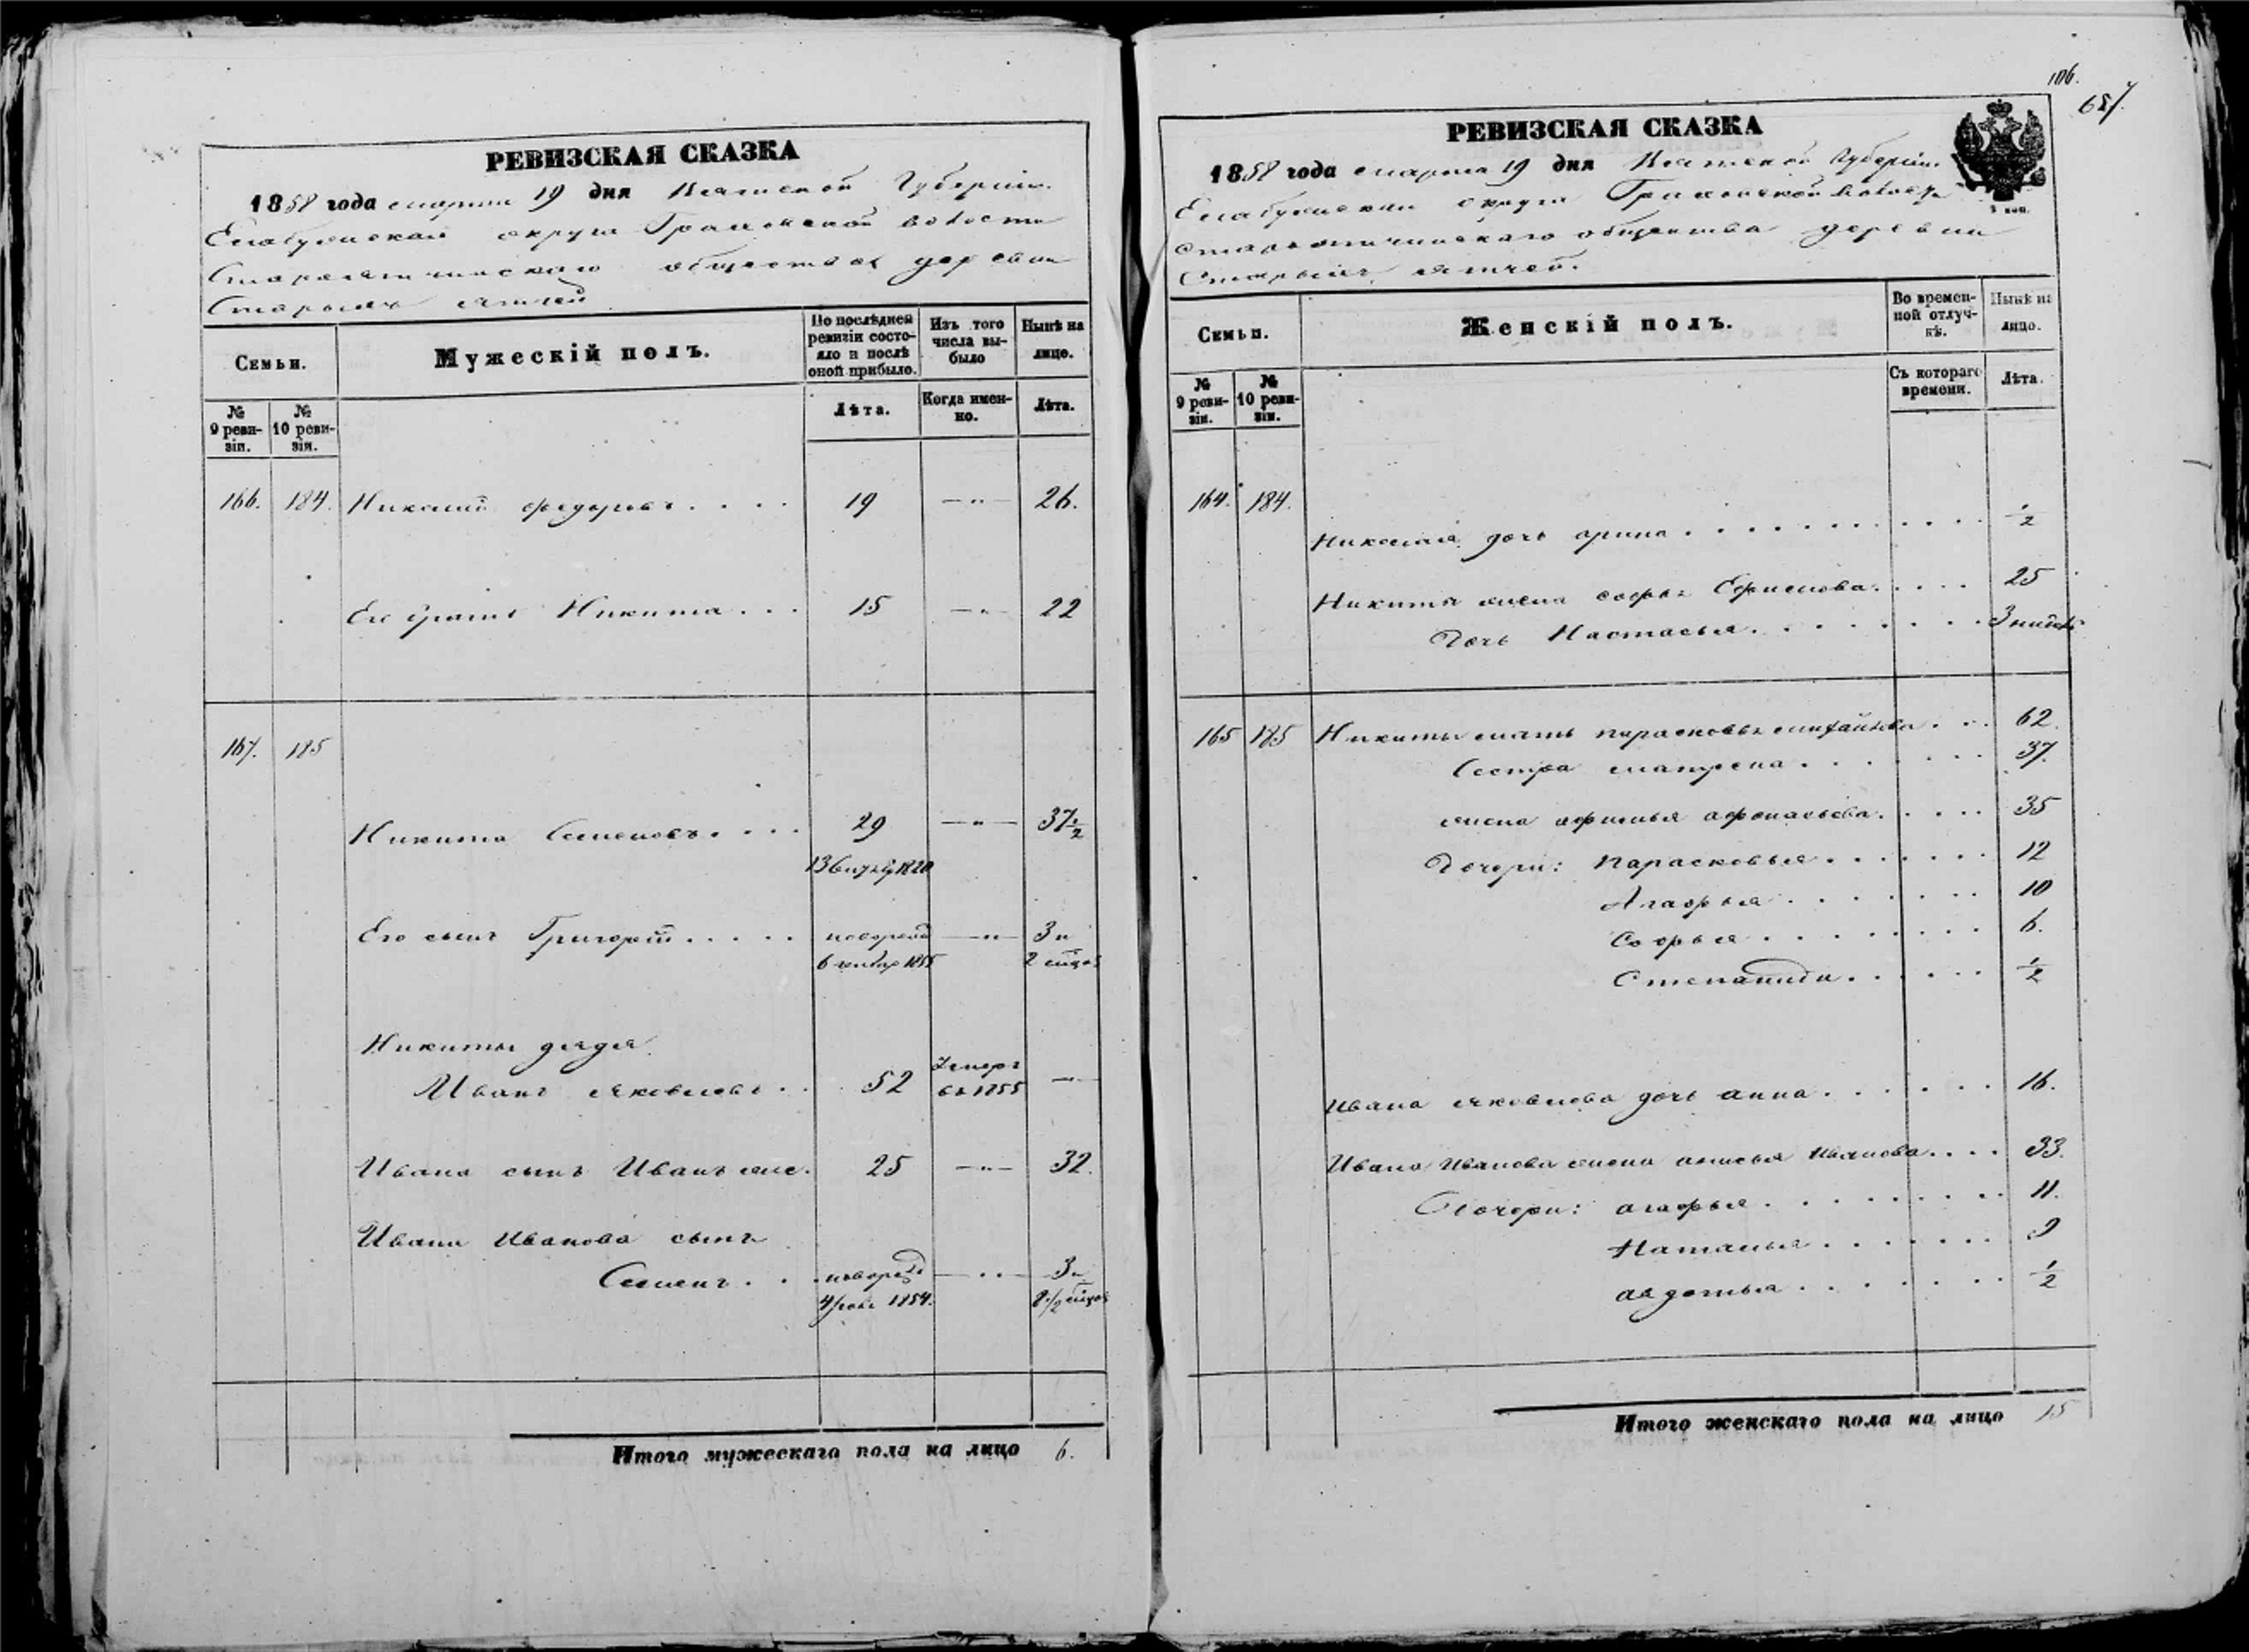 РЕВИЗСКАЯ СКАЗКА
1858 года марта 19 дня Вятской Губерніи
Елабужскаго округа Граховской волости
общества деревни
Старыхъ
Семьи.
Мужескій полъ.
По послѣдней ревизіи состояло и послѣ оной прибыло.
Изъ того числа выбыло
Нынѣ на лице.
№ 9 ревизіи.
№ 10 ревизіи.
Лѣта.
Когда именно.
Лѣта.
166. 184. Николай Федоровъ . . . . 19 —"— 26.
Его братъ Никита . . . 15 —"— 22
167. 185
Никита Семеновъ . . . . 29 —"— 37 1/2
1820
Его сынъ Григорій . . . . . новорожд —"— 3 и
6 генвар 1855 2 мѣсяц
Никиты дядя
Иванъ Яковлевъ . . 52 умеръ въ 1855 —
Ивана сынъ Иванъ же. 25 —"— 32.
Ивана Иванова сынъ
Семенъ . . . новорожд —"— 3 и
1854.
Итого мужескаго пола на лицо 6.
106.
657.
РЕВИЗСКАЯ СКАЗКА
1858 года марта 19 дня Вятской Губерніи
Елабужскаго округа Граховской волости
общества деревни
Старыхъ
Семьи.
Женскій полъ.
Во временной отлучкѣ.
Нынѣ на лицо.
№ 9 ревизіи.
№ 10 ревизіи.
Съ котораго времени.
Лѣта.
164. 184.
Николая дочь Арина . . . . . . . . . . 1/2
Никиты жена Софья Ефимова . . . . . 25
Дочь Настасья . . . . . . . 3 недѣль
165 185 Никиты мать Парасковья Михайлова . . . 62.
Сестра Матрена . . . . . . . 37.
жена Афимья Афонасьева . . . . . 35
Дочери: Парасковья . . . . . . . 12
Агафья . . . . . . . 10
Софья . . . . . . . . 6.
Степанида . . . . . . 1/2
Ивана Яковлева дочь Анна . . . . . . 16.
Ивана Иванова жена Анисья Иванова . . . . 33.
Дочери: Агафья . . . . . . . . 11.
Наталья . . . . . . . 9
Авдотья . . . . . . . . 1/2
Итого женскаго пола на лицо 15